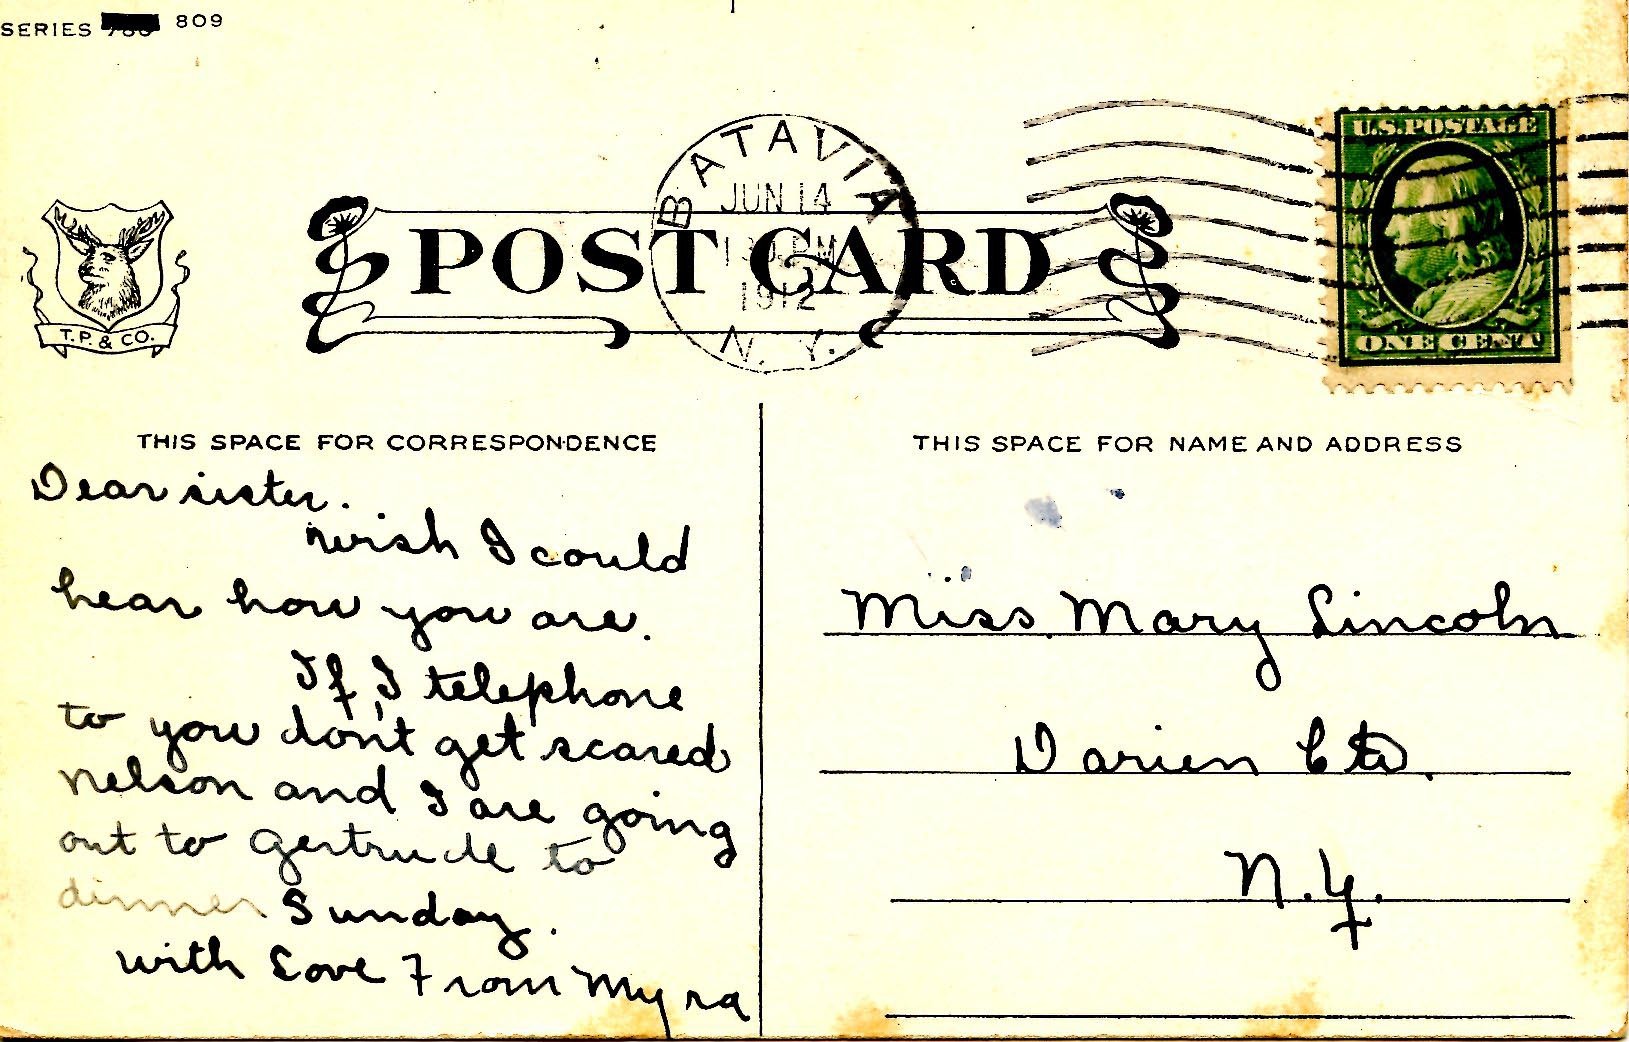 SERIES 809
U.S. POSTAGE
BATAVIA
JUN 14
PM
1912
N. Y.
POST CARD
T. P. & CO.
ONE CENT
THIS SPACE FOR CORRESPONDENCE
Dear sister.
wish I could
hear how you are.
If I telephone
to you don't get scared
Nelson and I are going
out to Gertrude to
dinner Sunday.
with Love From Myra
THIS SPACE FOR NAME AND ADDRESS
Miss Mary Lincoln
Darien Ctr.
N.Y.